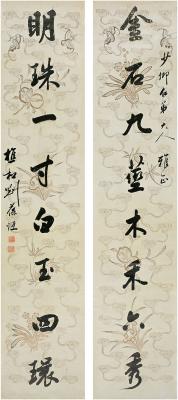 金石九莖木禾六秀
少卿仁弟大人雅正
明珠一寸白玉四環
樵和劉葆